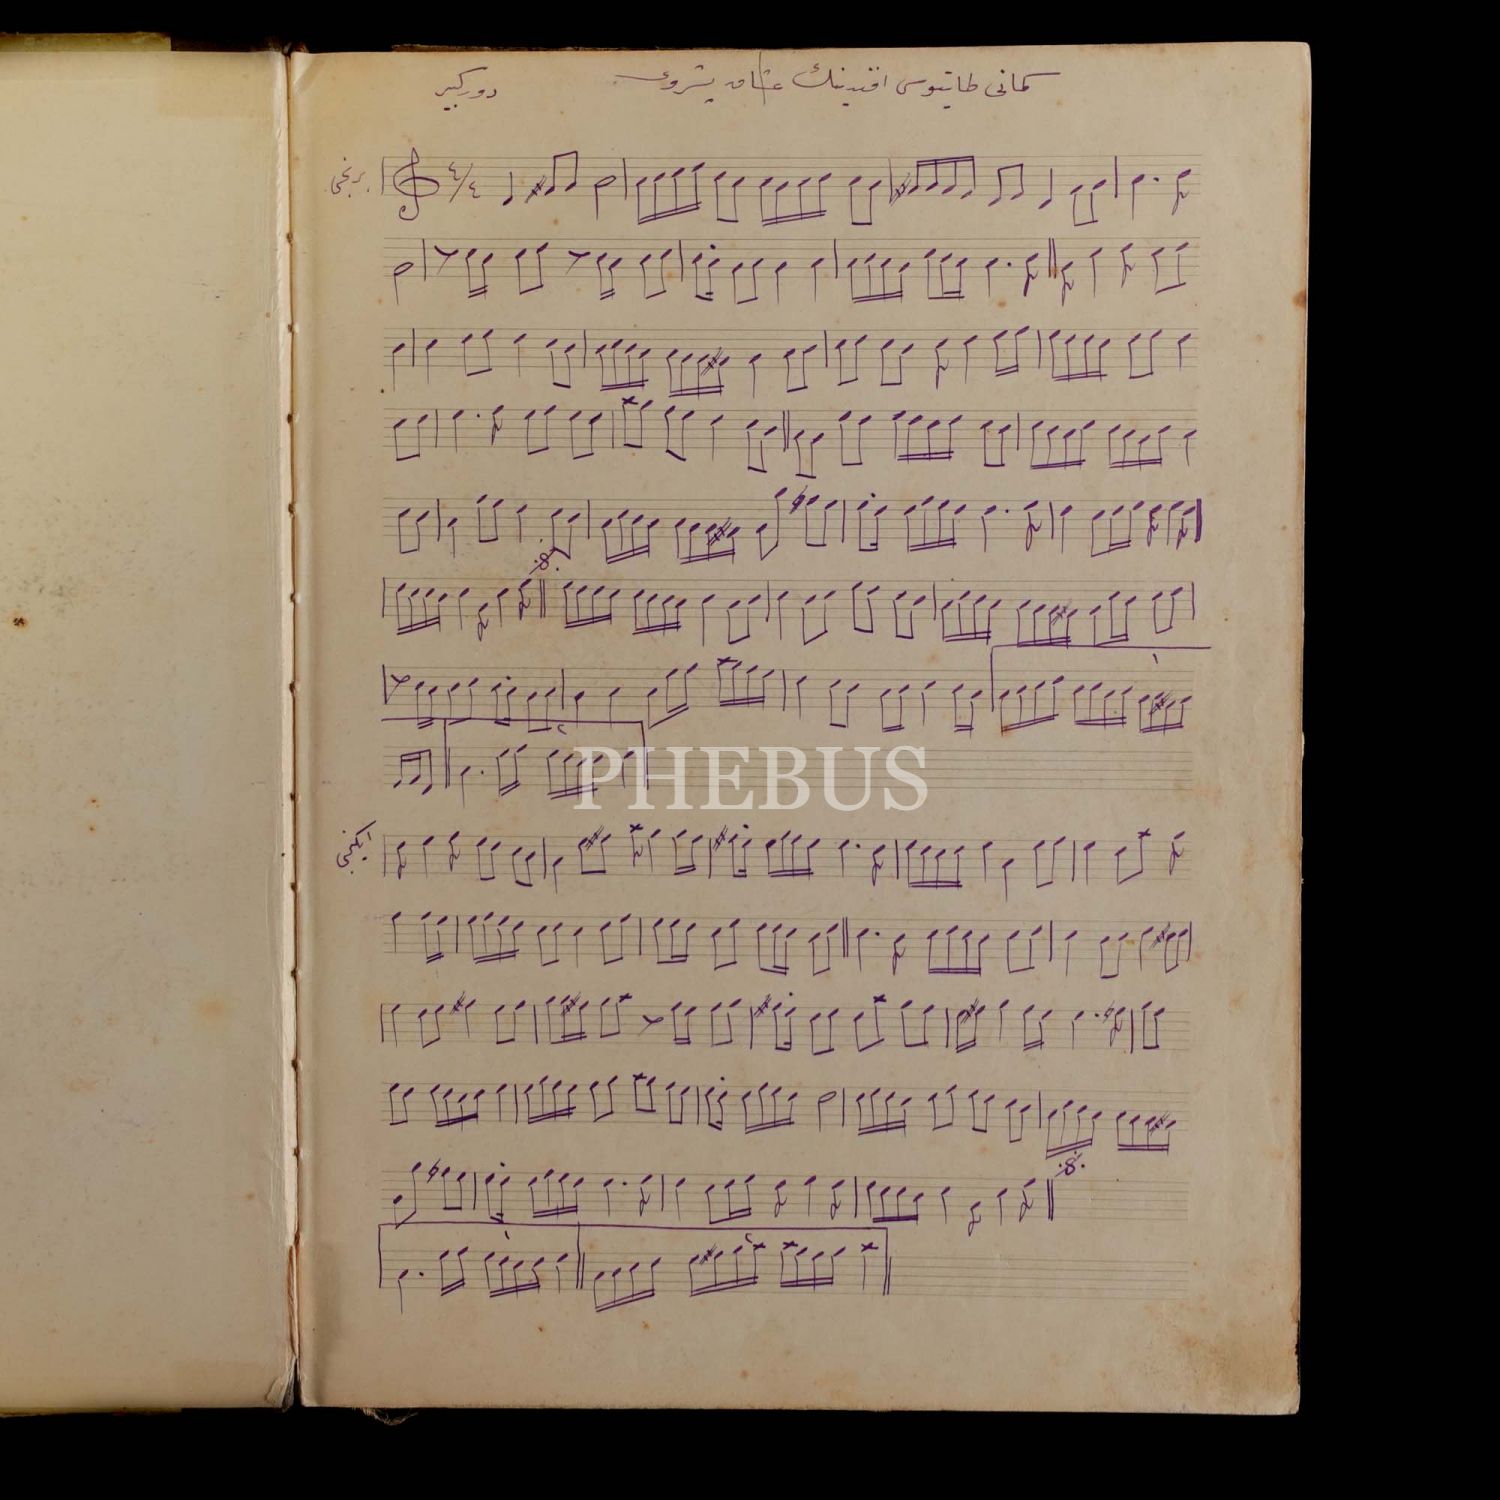 كمانی طاتیوس افندینك عشاق پیشروی دور كبیر
برنجی
٤/٤
PHEBUS
ایكنجی